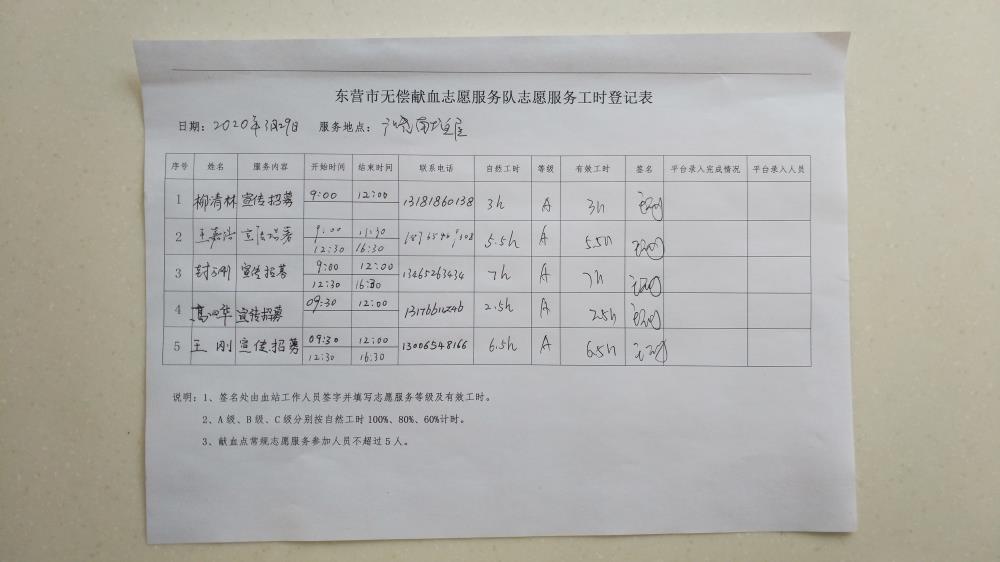 东营市无偿献血志愿服务队志愿服务工时登记表
日期：2020年3月29日 服务地点：
序号 姓名 服务内容 开始时间 结束时间 联系电话 自然工时 等级 有效工时 签名 平台录入完成情况 平台录入人员
1 柳清林 宣传招募 9:00 12:00 13181860138 3h A 3h
2 宣传招募 9:00 11:30 5.5h A 5.5h
12:30 16:30
3 宣传招募 9:00 12:00 13465263434 7h A 7h
12:30 16:30
4 宣传招募 09:30 12:00 2.5h A 2.5h
5 王刚 宣传招募 09:30 12:00 13006548166 6.5h A 6.5h
12:30 16:30
说明：1、签名处由血站工作人员签字并填写志愿服务等级及有效工时。
2、A级、B级、C级分别按自然工时100%、80%、60%计时。
3、献血点常规志愿服务参加人员不超过5人。